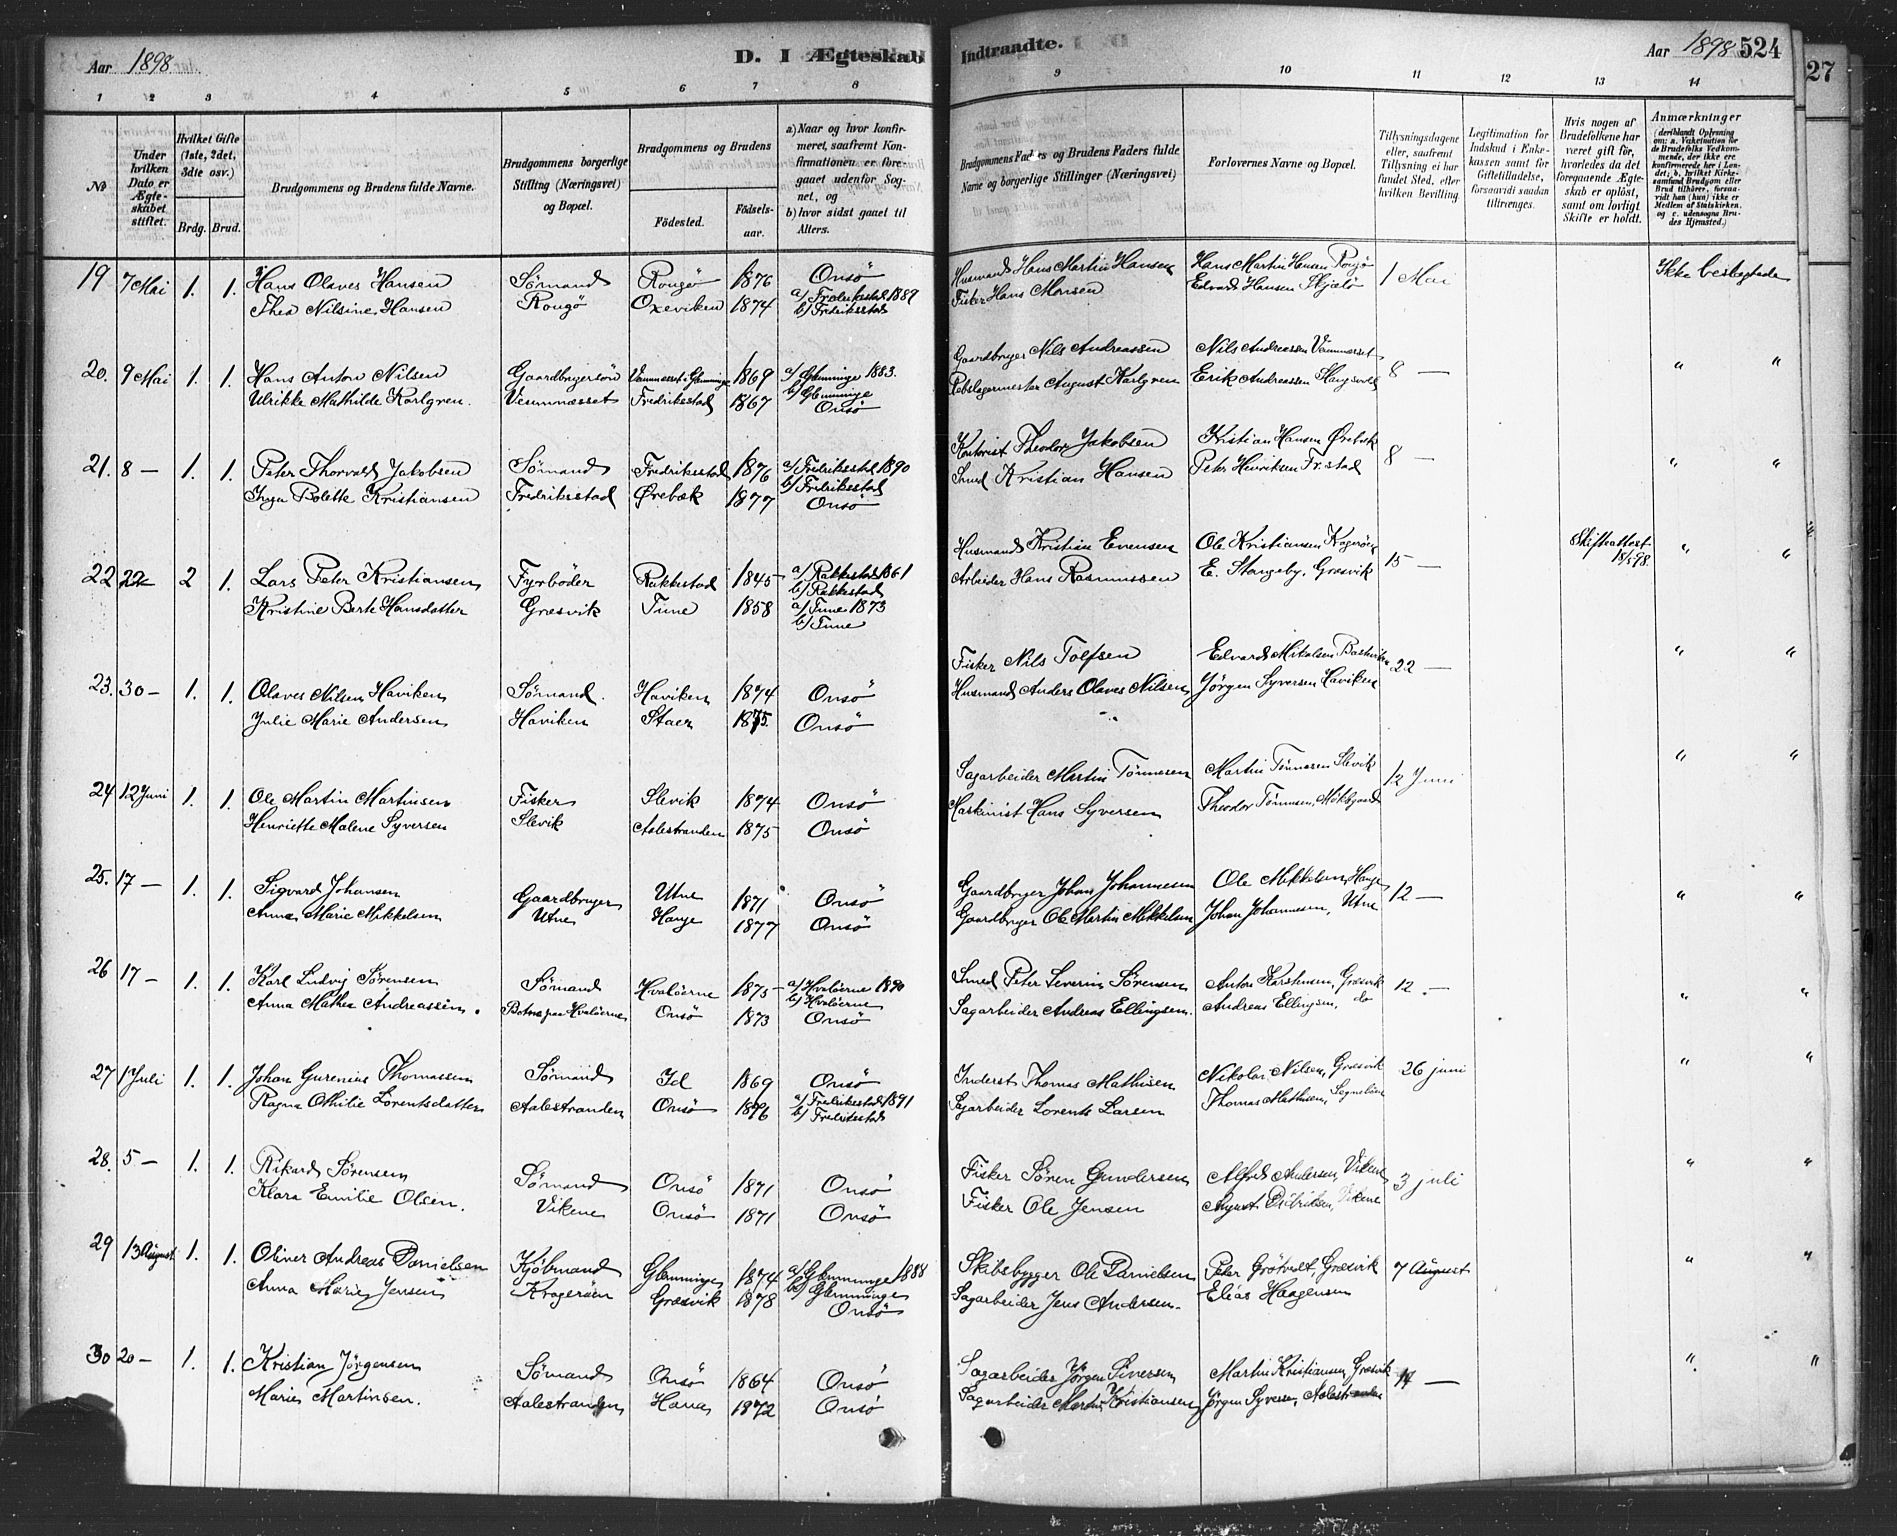 Aar 1898
D. I Ægteskab
Indtraadte.
Aar 1898
524
27
1 2 3 4 5 6 7 8 9 10 11 12 13 14
No
Under hvilken Dato er Ægteskabet stiftet.
Hvilket Gifte (1ste, 2det, 3die osv.)
Brdg. Brud.
Brudgommens og Brudens fulde Navne.
Brudgommens borgerlige Stilling (Næringsvei) og Bopæl.
Brudgommens og Brudens
Födested.
Födselsaar.
a) Naar og hvor konfirmeret, saafremt Konfirmationen er foregaaet udenfor Sognet, og
b) hvor sidst gaaet til Alters.
Brudgommens Faders og Brudens Faders fulde Navne og borgerlige Stillinger (Næringsvei)
Forlovernes Navne og Bopæl.
Tillysningsdagene eller, saafremt Tillysning ei har fundet Sted, efter hvilken Bevilling.
Legitimation for Indskud i Enkekassen samt for Giftetilladelse, forsaavidt saadan tiltrænges.
Hvis nogen af Brudefolkene har været gift för, hvorledes da det foregaaende Ægteskab er oplöst, samt om lovligt Skifte er holdt.
Anmærkninger
(deriblandt Oplysning om: a. Vakcination for de Brudefolks Vedkommende, der ikke ere konfirmerede her i Landet; b. hvilket Kirkesamfund Brudgom eller Brud tilhörer, forsaavidt han (hun) ikke er Medlem af Statskirken, og c. udensogns Brudes Hjemsted.)
19 7 Mai 1. 1. Hans Olaves Hansen Sömand Rougö 1876 Onsö Husmand Hans Martin Hansen Hans Martin Hansen Rougö 1 Mai Ikke beslegtede
Thea Nilsine Hansen Rougö Oxeviken 1874 a/ Fredriksstad 1889 b/ Fredriksstad Fisker Hans Monsen Edvard Hansen Skjælö
20. 9 Mai 1. 1. Hans Anton Nilsen Gaardbrugersön Vemmæsset i Glemminge 1869 a/ Glemminge 1883. b/ Glemminge Gaardbruger Nils Andreassen Nils Andreassen Vemmæsset 8 — " "
Ulrikke Mathilde Karlgren. Vesumnæsset Fredrikstad 1867 Onsö Rebslagermester August Karlgren Erik Andreassen Slangsvold
21. 8 — 1. 1. Peter Thorvald Jakobsen Sömand Fredriksstad 1876 a/ Fredriksstad 1890 b/ Fredriksstad Kontorist Theodor Jakobsen Kristian Hansen Örebæk 8 — " "
Inga Bolette Kristiansen Fredriksstad Örebæk 1877 Onsö Smed Kristian Hansen Peter Henriksen Fr.stad
22 22 2 1. Lars Peter Kristiansen Fyrböder Rakkestad 1845 a/ Rakkestad 1861 b/ Rakkestad Husmand Kristian Evensen Ole Kristiansen Krageröen 15 — Skifteattest 18/5 98. " "
Kristine Berte Hansdatter Græsvik Tune 1858 a/ Tune 1873 b/ Tune Arbeider Hans Rasmussen E. Stangeby, Græsvik
23. 30 — 1. 1. Olaves Nilsen Haviken Sömand. Haviken 1874 Onsö Fisker Nils Tolfsen Edvard Mikalsen 22 — " "
Julie Marie Andersen Haviken Staer 1875. Onsö Husmand Anders Olaves Nilsen Jörgen Syversen Haviken
24 12 Juni 1. 1. Ole Martin Martinsen Fisker Slevik 1874 Onsö Sagarbeider Martin Tönnesen Martin Tönnesen Slevik 12 Juni " "
Henriette Malene Syversen Slevik Aalestranden 1875 Onsö Maskinist Hans Syversen Theodor Tönnesen, Möklegaard
25. 17 — 1. 1. Sigvard Johansen Gaardbruger Utne 1871 Onsö Gaardbruger Johan Johannesen Ole Mikkelsen, Hauge 12 — " "
Anna Marie Mikkelsen Utne Hauge 1877 Onsö Gaardbruger Ole Martin Mikkelsen Johan Johannesen, Utne
26 17 — 1. 1. Karl Ludvig Sörensen Sömand Hvalöerne 1875 a/ Hvalöerne 1890 b/ Hvalöerne Smed Peter Severin Sörensen Anton Karstensen, Græsvik 12. — " "
Anna Mathea Andreassen. Botne paa Hvalöerne Onsö 1873 Onsö Sagarbeider Andreas Ellingsen. Andreas Ellingsen, do
27 1 Juli 1. 1. Johan Gurenius Thomassen Sömand Id 1869 Onsö Inderst Thomas Mathisen Nikolai Nilsen, Græsvik 26 juni " "
Ragna Othilie Lorentsdatter Aalestranden Onsö 1876 a/ Fredrikstad 1891 b/ Fredrikstad Sagarbeider Lorents Larsen Thomas Mathisen,
28. 5 — 1. 1. Rikard Sörensen Sömand Onsö 1871 Onsö Fisker Sören Gundersen Alfred Andersen, Vikene 3 juli " "
Klara Emilie Olsen. Vikene Onsö 1871 Onsö Fisker Ole Jensen August Didriksen, Vikene
29 13 August 1. 1. Oliver Andreas Danielsen Kjöbmand Glemminge 1874 a/ Glemminge 1888 b/ Glemminge Skibsbygger Ole Danielsen Peter Grötvedt, Græsvik 7 August " "
Anna Marie Jensen Krageröen Græsvik 1878 Onsö Sagarbeider Jens Andersen. Elias Haagensen
30 20 — 1. 1. Kristian Jörgensen Sömand Onsö 1864 Onsö Sagarbeider Jörgen Siversen Martin Kristiansen, Græsvik 14 — " "
Marie Martinsen. Aalestranden Hana 1872 Onsö Sagarbeider Martin Kristiansen Jörgen Syversen, Aalestranden